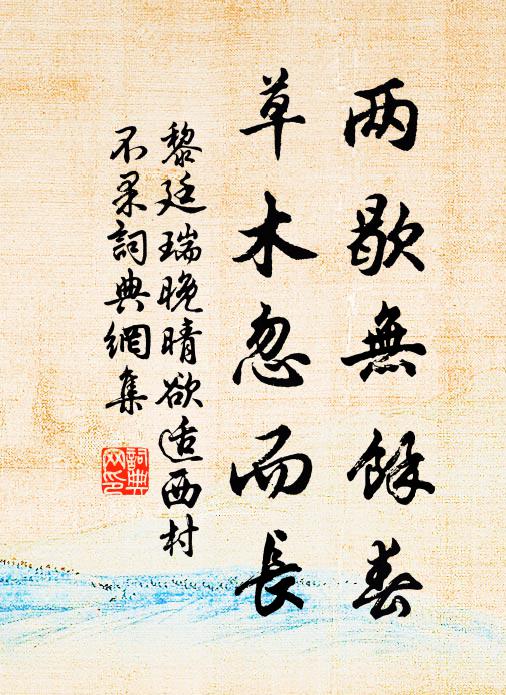 雨歇無餘春
草木忽而長
黎廷瑞晚晴欲适西村
不果詞典網集
詞典
网印